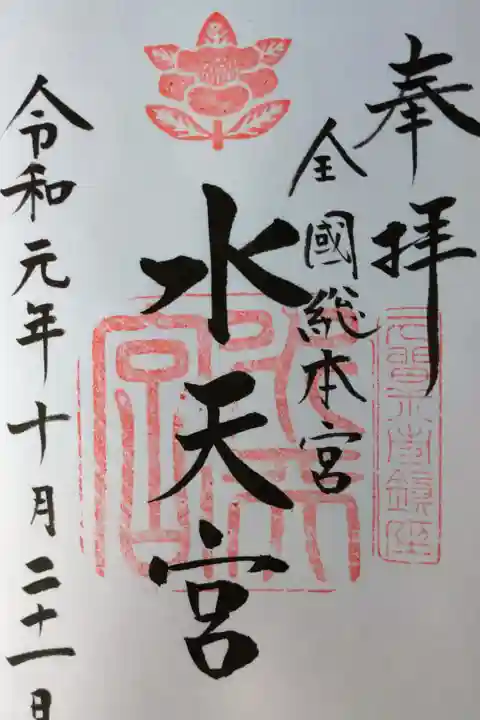 奉拝
全國総本宮
水天宮
令和元年十月二十一日